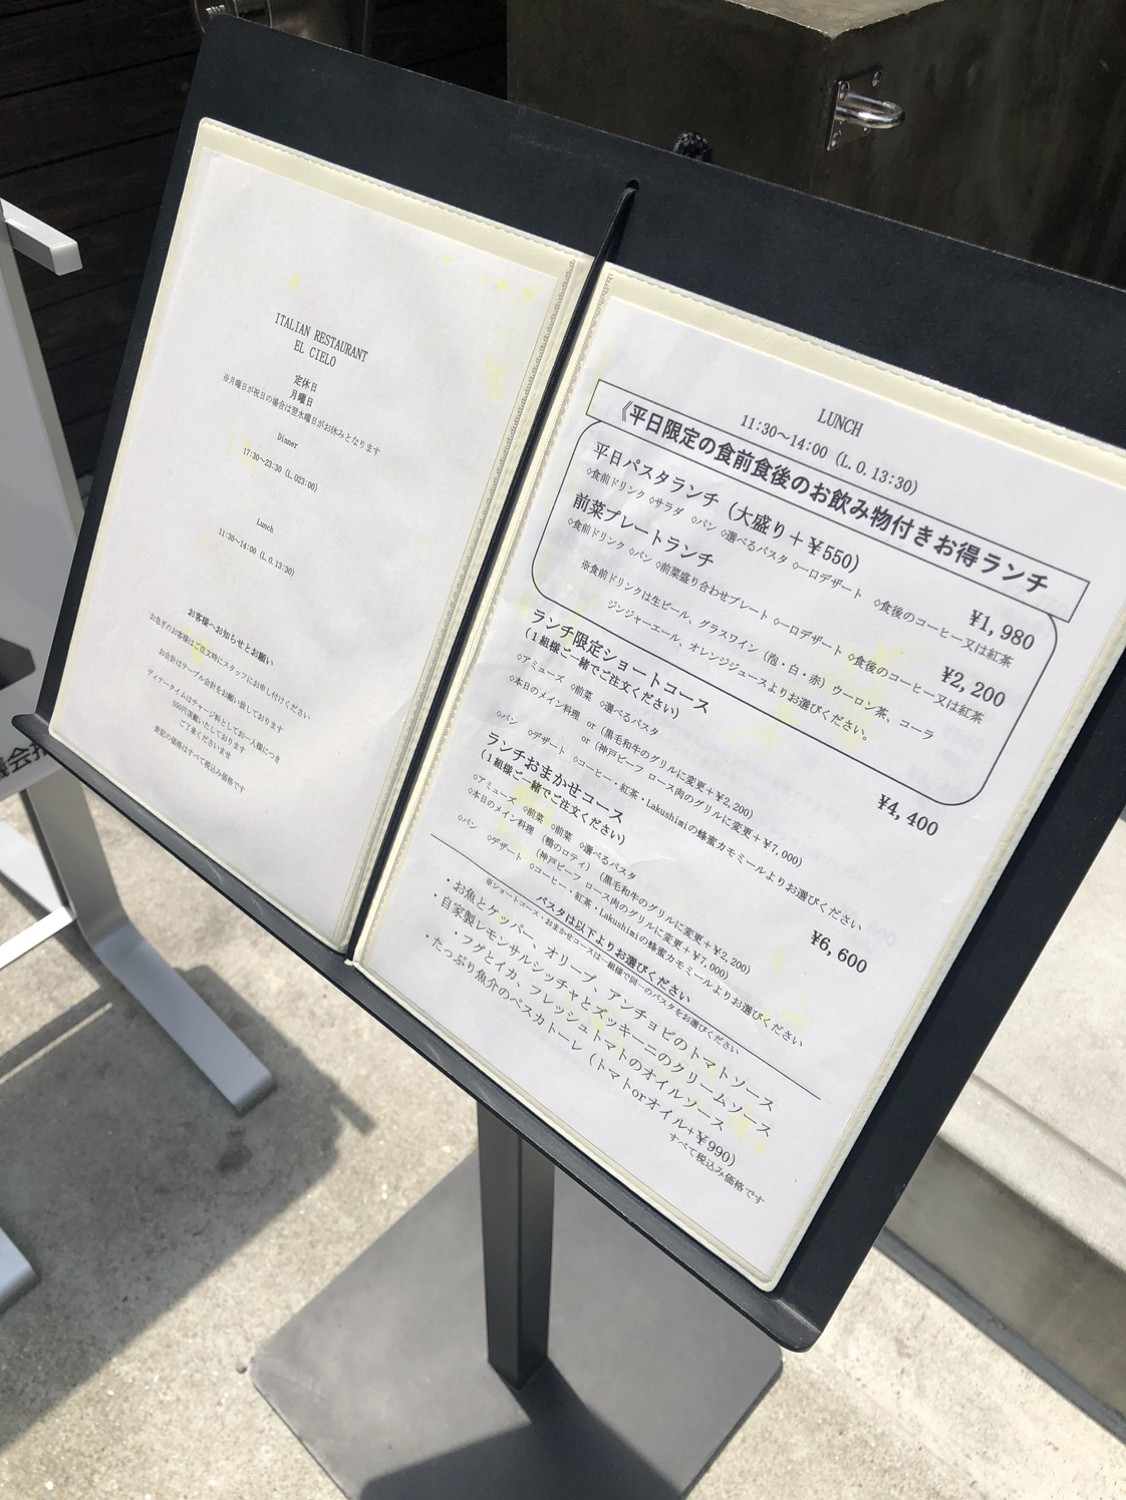 ITALIAN RESTAURANT
EL CIELO
定休日
月曜日
※月曜日が祝日の場合は翌水曜日がお休みとなります
Dinner
17:30~23:30 (L.O23:00)
Lunch
11:30~14:00 (L.O.13:30)
お客様へお知らせとお願い
お急ぎのお客様はご注文時にスタッフにお申し付けください
お会計はテーブル会計をお願い致しております
ディナータイムはチャージ料としてお一人様につき
550円頂戴いたしております
ご了承くださいませ
表記の価格はすべて税込み価格です
LUNCH
11:30~14:00 (L.O.13:30)
《平日限定の食前食後のお飲み物付きお得ランチ
平日パスタランチ (大盛り+¥550)
¥1,980
◇食前ドリンク ◇サラダ ◇パン ◇選べるパスタ ◇一口デザート ◇食後のコーヒー又は紅茶
前菜プレートランチ
¥2,200
◇食前ドリンク ◇パン ◇前菜盛り合わせプレート ◇一口デザート ◇食後のコーヒー又は紅茶
※食前ドリンクは生ビール、グラスワイン (泡・白・赤) ウーロン茶、コーラ
ジンジャーエール、オレンジジュースよりお選びください。
ランチ限定ショートコース
¥4,400
(1組様ご一緒でご注文ください)
◇アミューズ ◇前菜 ◇選べるパスタ
◇本日のメイン料理 or (黒毛和牛のグリルに変更+¥2,200)
or (神戸ビーフ ロース肉のグリルに変更+¥7,000)
◇パン ◇デザート ◇コーヒー・紅茶・Lakushimiの蜂蜜カモミールよりお選びください
ランチおまかせコース
¥6,600
(1組様ご一緒でご注文ください)
◇アミューズ ◇前菜 ◇前菜 ◇選べるパスタ
◇本日のメイン料理 (鴨のロティ) (黒毛和牛のグリルに変更+¥2,200)
(神戸ビーフ ロース肉のグリルに変更+¥7,000)
◇パン ◇デザート ◇コーヒー・紅茶・Lakushimiの蜂蜜カモミールよりお選びください
パスタは以下よりお選びください
※ショートコース・おまかせコースは一組様で同一のパスタをお選びください
・お魚とケッパー、オリーブ、アンチョビのトマトソース
・自家製レモンサルシッチャとズッキーニのクリームソース
・フグとイカ、フレッシュトマトのオイルソース
・たっぷり魚介のペスカトーレ (トマトorオイル+¥990)
すべて税込み価格です